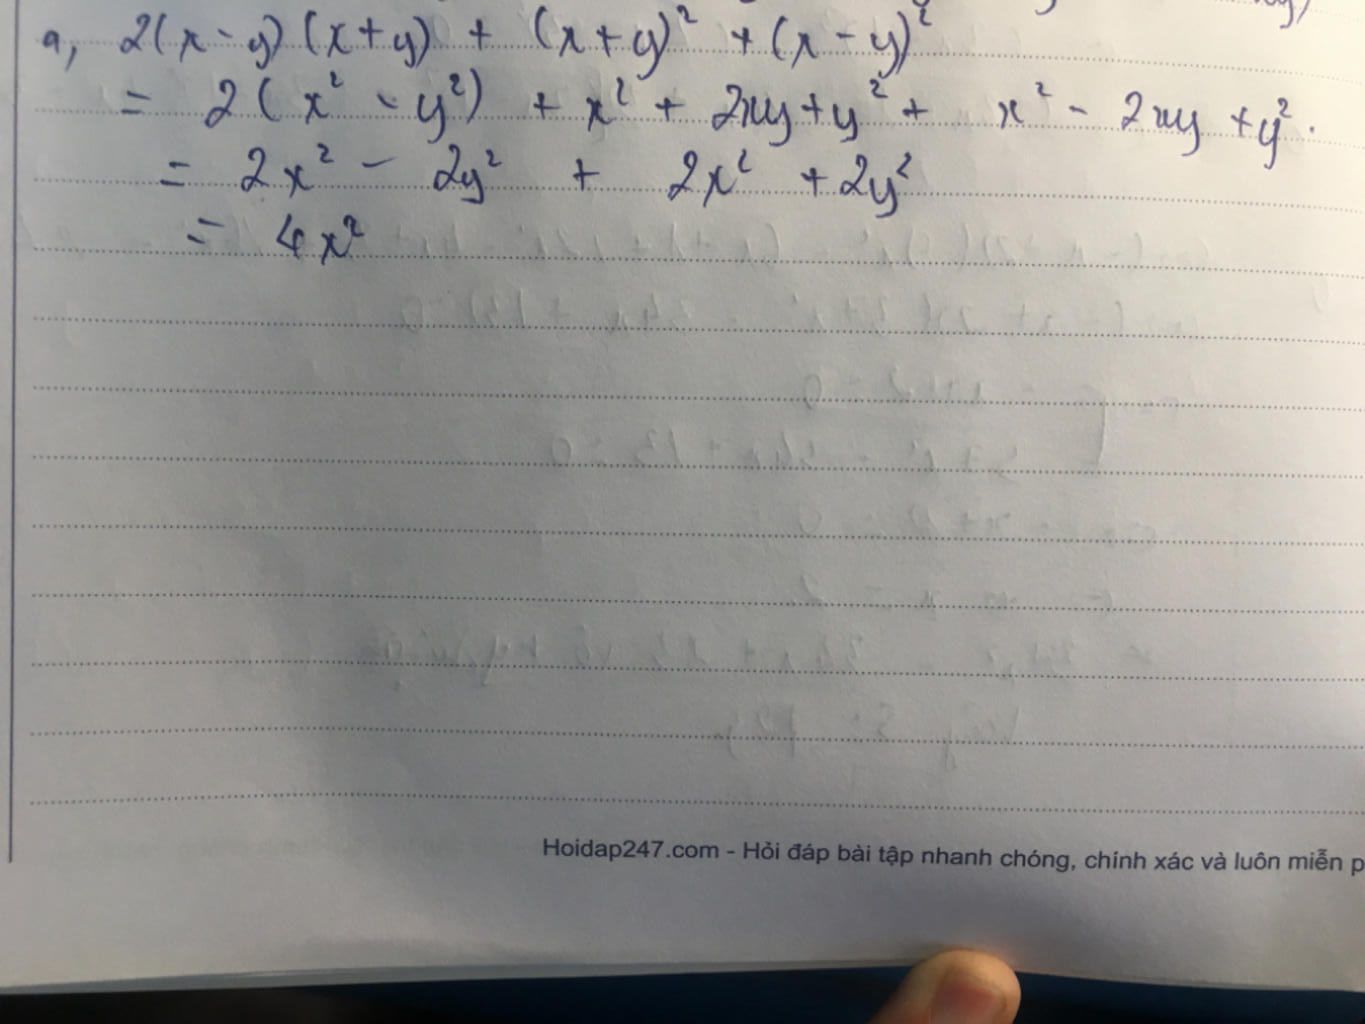 a, 2(x - y)(x + y) + (x + y)² + (x - y)²
= 2(x² - y²) + x² + 2xy + y² + x² - 2xy + y².
= 2x² - 2y² + 2x² + 2y²
= 4x²
Hoidap247.com - Hỏi đáp bài tập nhanh chóng, chính xác và luôn miễn p